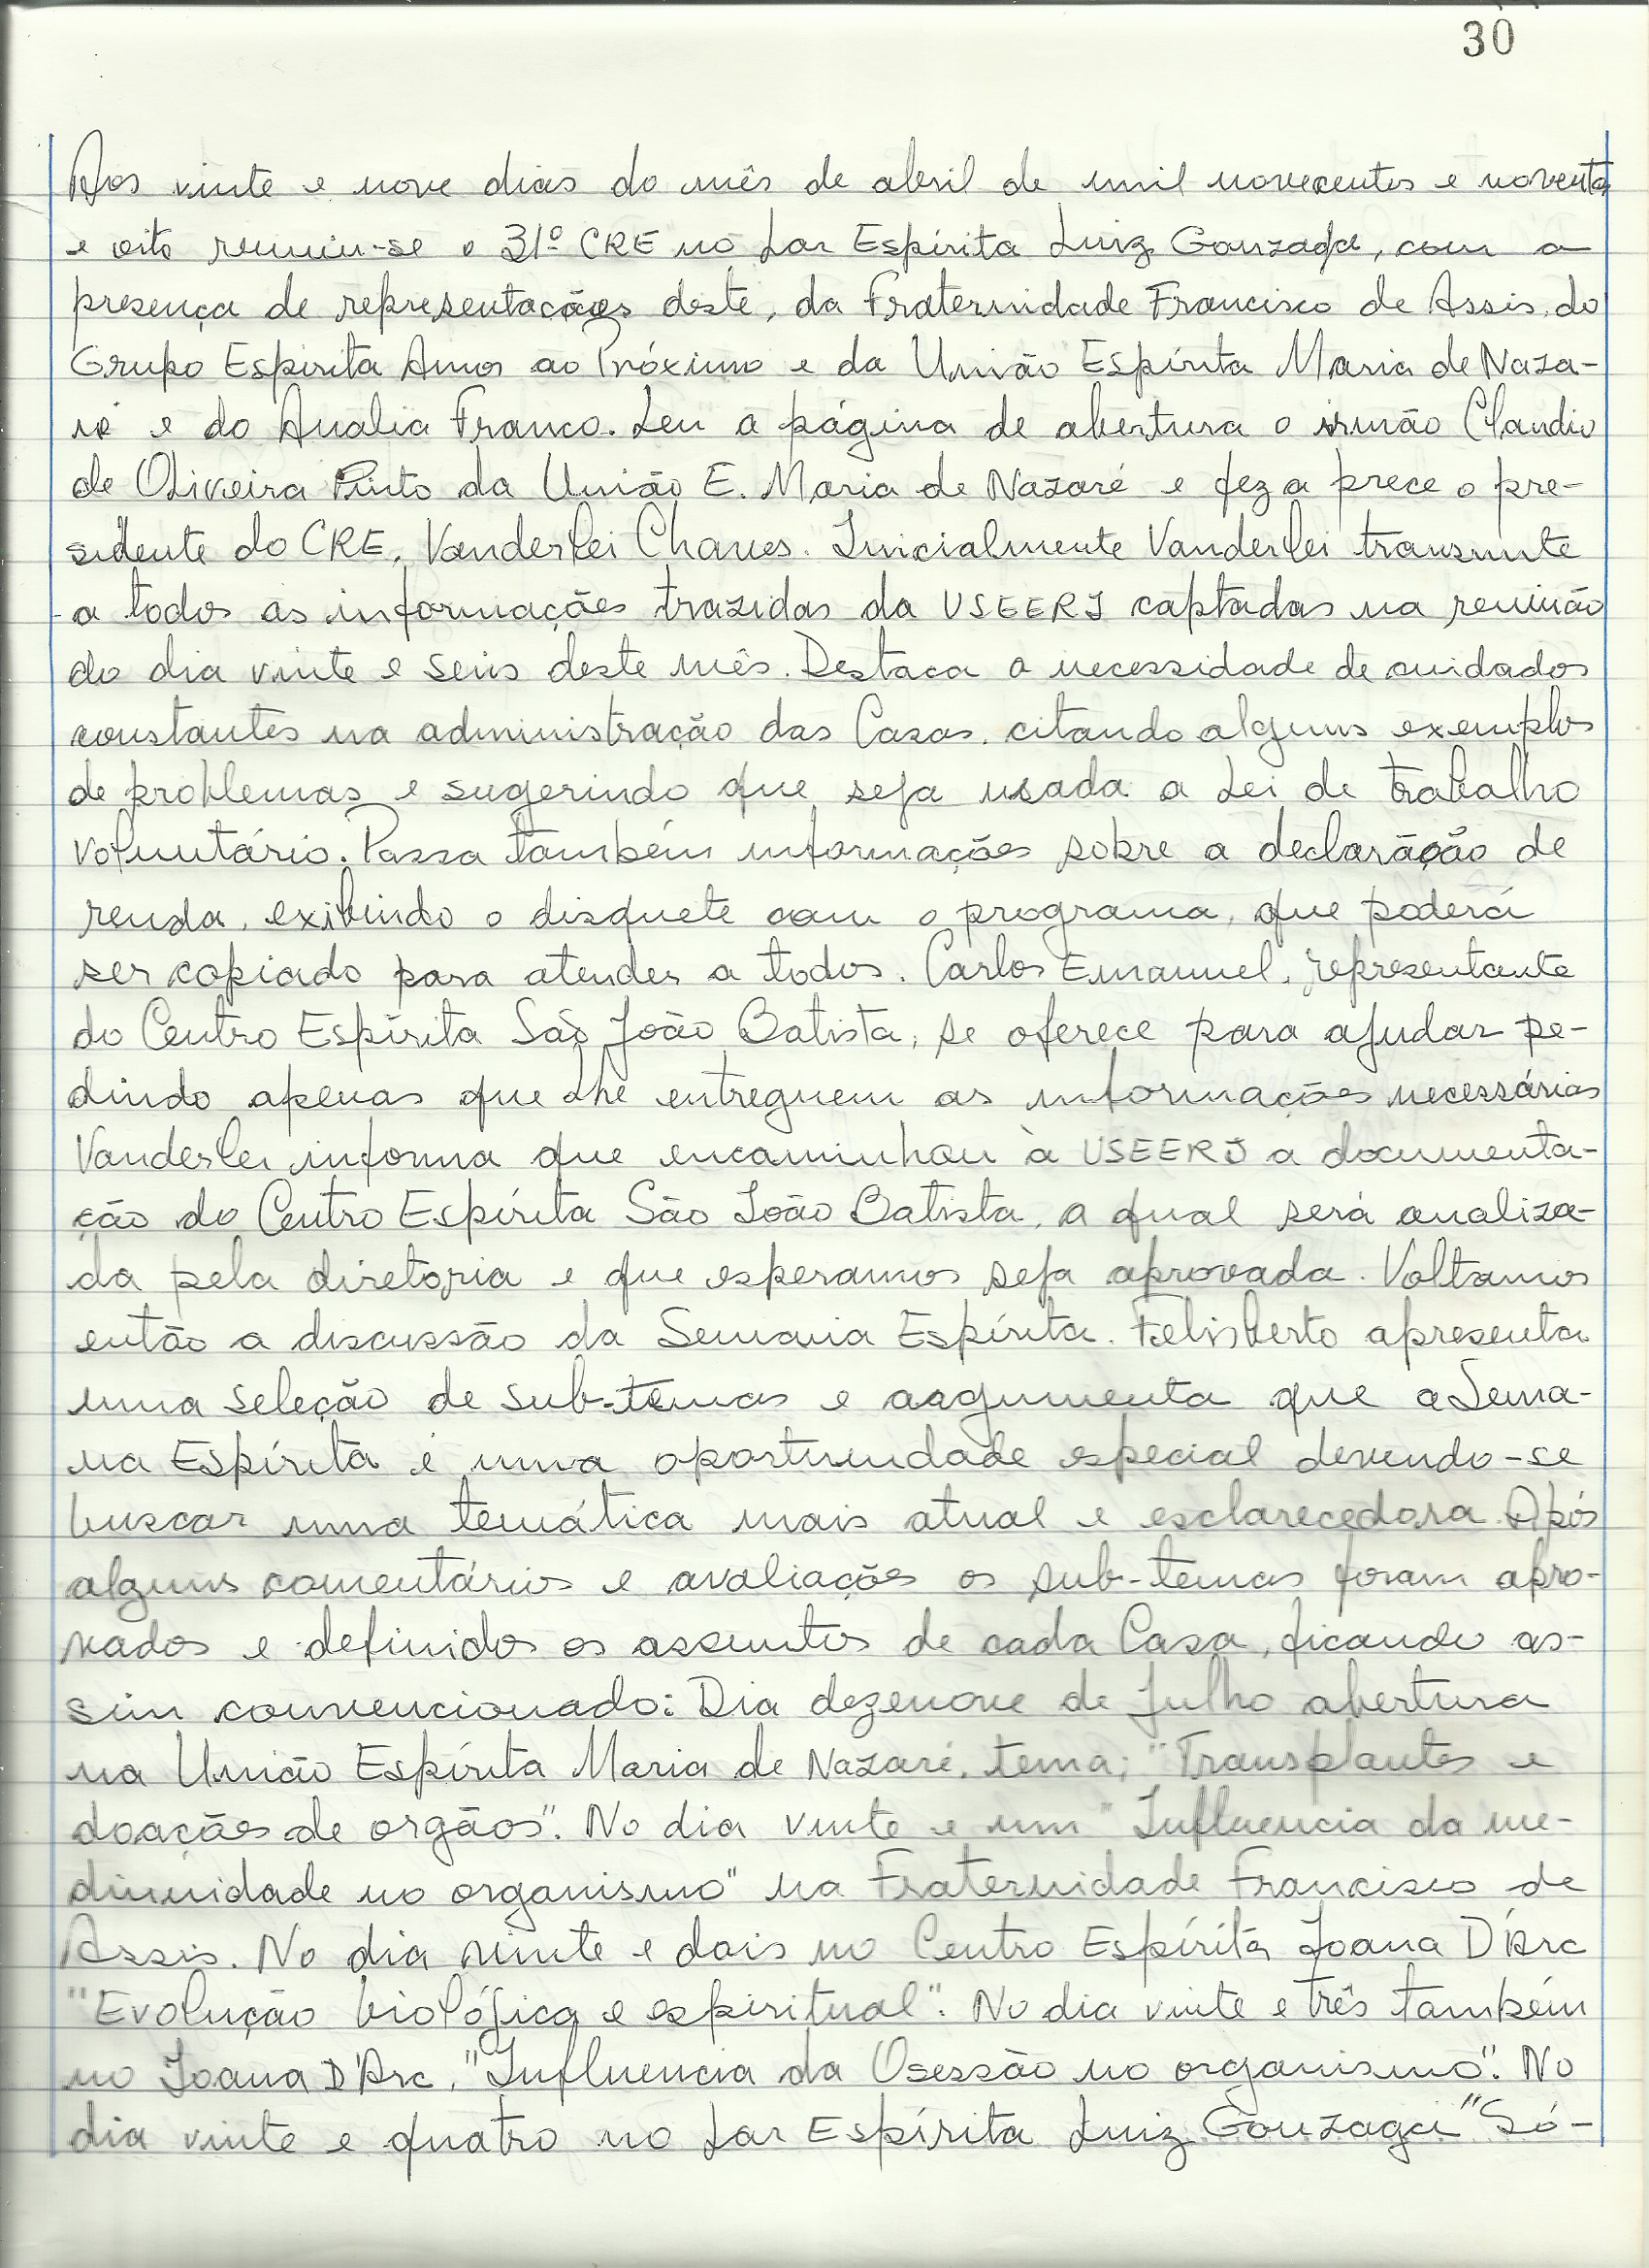 30
Aos vinte e nove dias do mês de abril de mil novecentos e noventa
e oito reuniu-se o 31º CRE no Lar Espírita Luiz Gonzaga, com a
presença de representações deste, da Fraternidade Francisco de Assis, do
Grupo Espírita Amor ao Próximo e da União Espírita Maria de Naza-
ré e do Analia Franco. Leu a página de abertura o irmão Claudio
de Oliveira Pinto da União E. Maria de Nazaré e fez a prece o pre-
sidente do CRE, Vanderlei Chaves. Inicialmente Vanderlei transmite
a todos as informações trazidas da USEERJ captadas na reunião
do dia vinte e seis deste mês. Destaca a necessidade de cuidados
constantes na administração das Casas, citando alguns exemplos
de problemas e sugerindo que seja usada a Lei de trabalho
voluntário. Passa também informações sobre a declaração de
renda, exibindo o disquete com o programa, que poderá
ser copiado para atender a todos. Carlos Emanuel, representante
do Centro Espírita São João Batista, se oferece para ajudar pe-
dindo apenas que lhe entreguem as informações necessárias
Vanderlei informa que encaminhou à USEERJ a documenta-
ção do Centro Espírita São João Batista, a qual será analiza-
da pela diretoria e que esperamos seja aprovada. Voltamos
então a discussão da Semana Espírita. Felisberto apresenta
uma seleção de sub-temas e aagumenta que a Sema-
na Espírita é uma oportunidade especial devendo-se
buscar uma temática mais atual e esclarecedora. Após
alguns comentários e avaliações os sub-temas foram apro-
vados e definidos os assuntos de cada Casa, ficando as-
sim convencionado: Dia dezenove de Julho abertura
na União Espírita Maria de Nazaré, tema; "Transplantes e
doações de orgãos". No dia vinte e um "Influencia da me-
diunidade no organismo" na Fraternidade Francisco de
Assis. No dia vinte e dois no Centro Espírita Joana D'Arc
"Evolução biológica e espiritual". No dia vinte e três também
no Joana D'Arc, "Influencia da Osessão no organismo". No
dia vinte e quatro no Lar Espírita Luiz Gonzaga "Só-